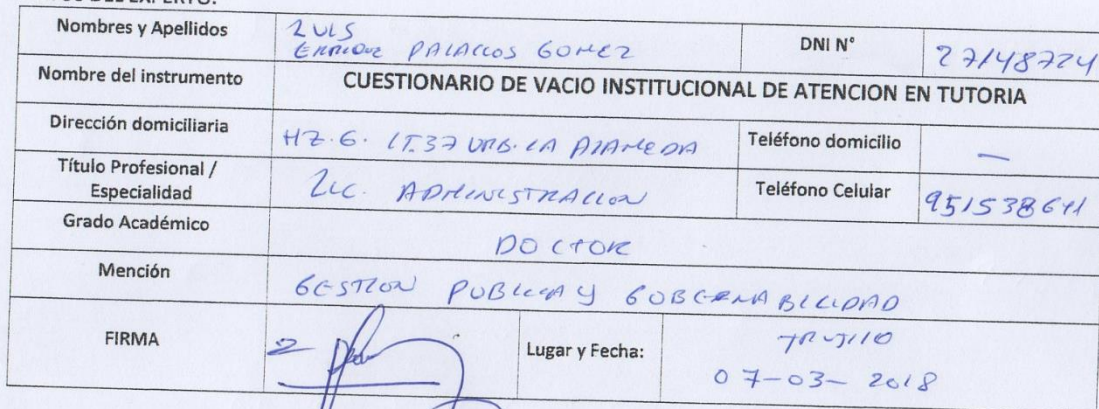 DEL EXPERTO:
Nombres y Apellidos
LUIS
ENRIQUE PALACIOS GOMEZ
DNI N°
27148724
Nombre del instrumento
CUESTIONARIO DE VACIO INSTITUCIONAL DE ATENCION EN TUTORIA
Dirección domiciliaria
MZ. G. LT.37 URB. LA ALAMEDA
Teléfono domicilio
—
Título Profesional /
Especialidad
LIC. ADMINISTRACION
Teléfono Celular
Grado Académico
DOCTOR
Mención
GESTION PUBLICA Y GOBERNABILIDAD
FIRMA
Lugar y Fecha:
TRUJILLO
07-03-2018